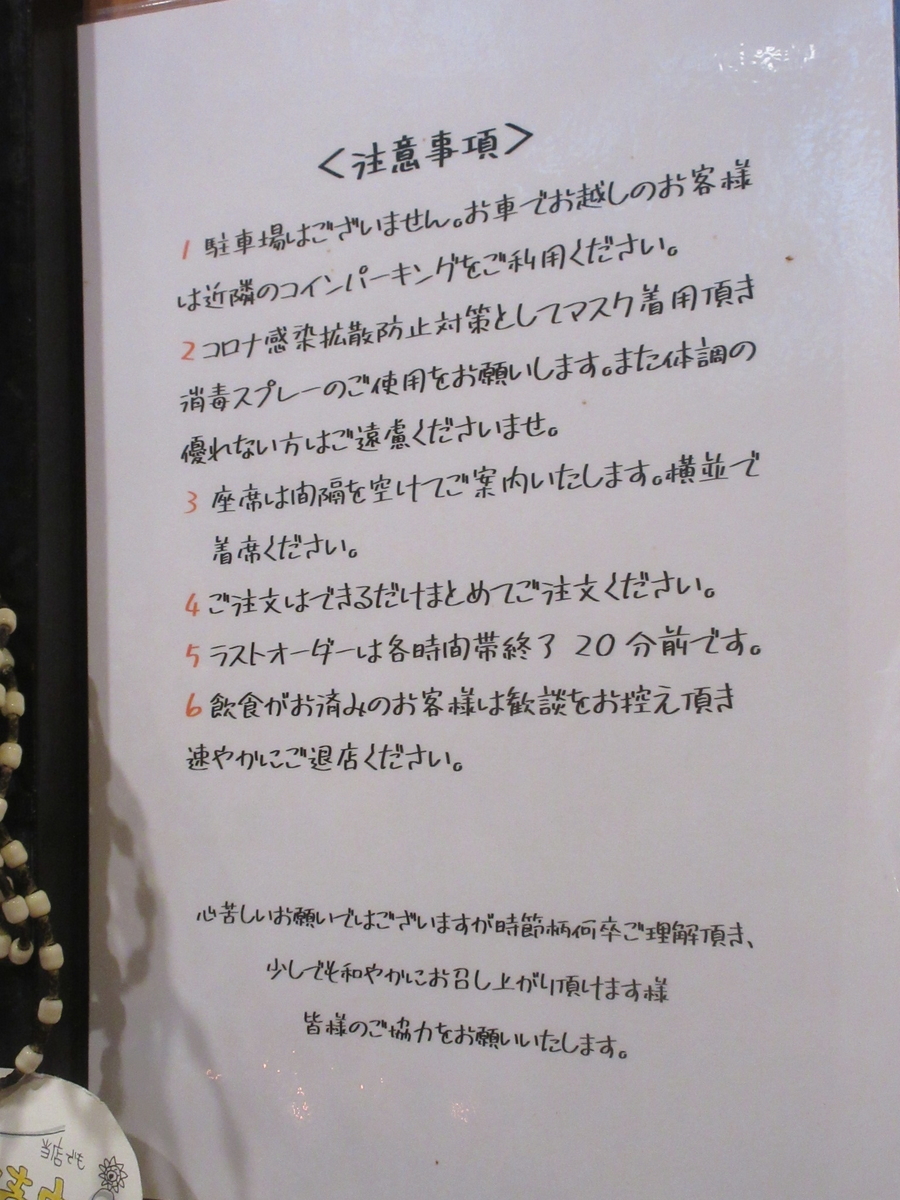 <注意事項>
1 駐車場はございません。お車でお越しのお客様
は近隣のコインパーキングをご利用ください。
2 コロナ感染拡散防止対策としてマスク着用頂き
消毒スプレーのご使用をお願いします。また体調の
優れない方はご遠慮くださいませ。
3 座席は間隔を空けてご案内いたします。横並で
着席ください。
4 ご注文はできるだけまとめてご注文ください。
5 ラストオーダーは各時間帯終了 20 分前です。
6 飲食がお済みのお客様は歓談をお控え頂き
速やかにご退店ください。
心苦しいお願いではございますが時節柄何卒ご理解頂き、
少しでも和やかにお召し上がり頂けます様
皆様のご協力をお願いいたします。
当店でも